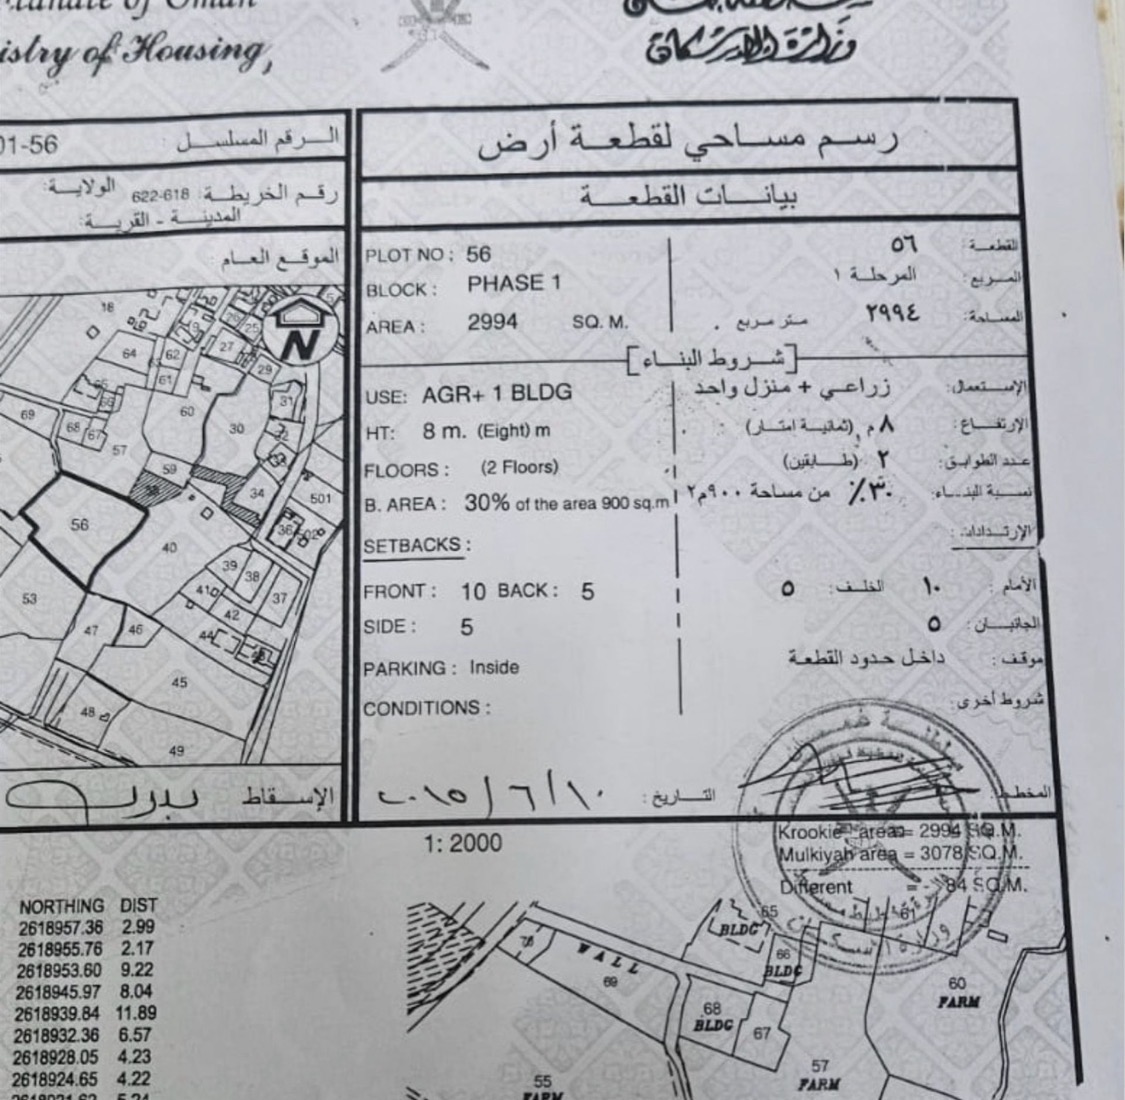 of Oman
istry of Housing,
وزارة الإسكان
01-56 الرقم المسلسل :
رقم الخريطة: 618-622 الولاية:
المدينة - القرية:
الموقع العام
رسم مساحي لقطعة أرض
بيانات القطعة
PLOT NO : 56 ٥٦ القطعة :
BLOCK : PHASE 1 المرحلة ١ المربع :
AREA : 2994 SQ. M. متر مربع . ٢٩٩٤ المساحة:
[شروط البناء]
USE: AGR+ 1 BLDG زراعي + منزل واحد الإستعمال:
HT: 8 m. (Eight) m ٨ م (ثمانية امتار) الإرتفاع :
FLOORS : (2 Floors) ٢ (طابقين) عدد الطوابق:
B. AREA : 30% of the area 900 sq.m ٣٠٪ من مساحة ٩٠٠م٢ نسبة البناء:
SETBACKS : الإرتدادات:
FRONT : 10 BACK : 5 الأمام : ١٠ الخلف: ٥
SIDE : 5 الجانبان : ٥
PARKING : Inside موقف: داخل حدود القطعة
CONDITIONS : شروط أخرى:
المخطط: التاريخ : ٢٠١٥/٦/١٠
الإسقاط
N
18
25
27
29
64
62
61
31
60
30
69
68
67
57
59
34
501
56
40
36
39
38
41
37
42
53
47
46
44
45
48
49
1: 2000
Krookie area= 2994 SQ.M.
Mulkiyah area = 3078 SQ.M.
Different = - 84 SQ.M.
NORTHING DIST
2618957.36 2.99
2618955.76 2.17
2618953.60 9.22
2618945.97 8.04
2618939.84 11.89
2618932.36 6.57
2618928.05 4.23
2618924.65 4.22
65
BLDG
61
WALL
66
BLDG
69
60
FARM
68
BLDG
67
57
FARM
55
FARM